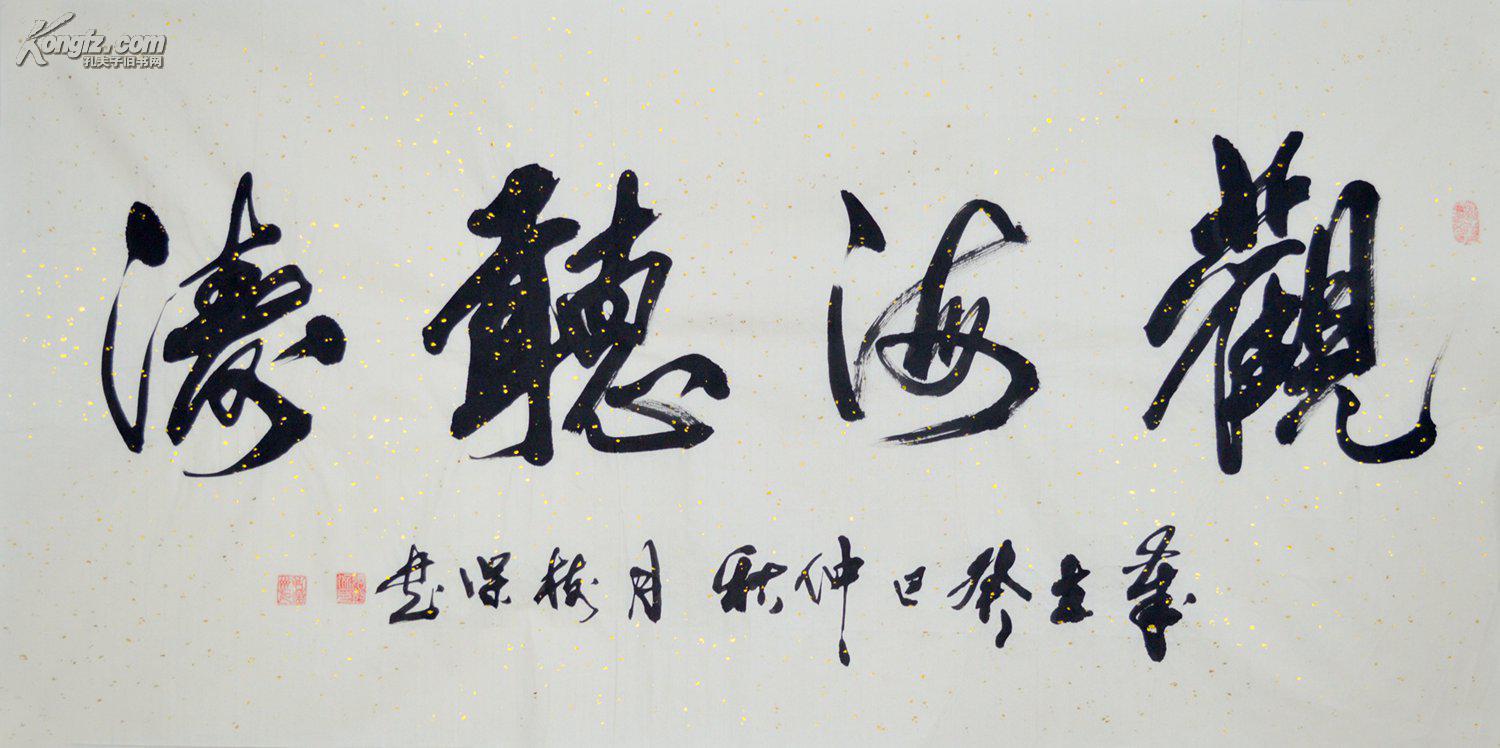 Kongfz.com
孔夫子旧书网
觀海聽濤
歲在癸巳仲秋月樹深書